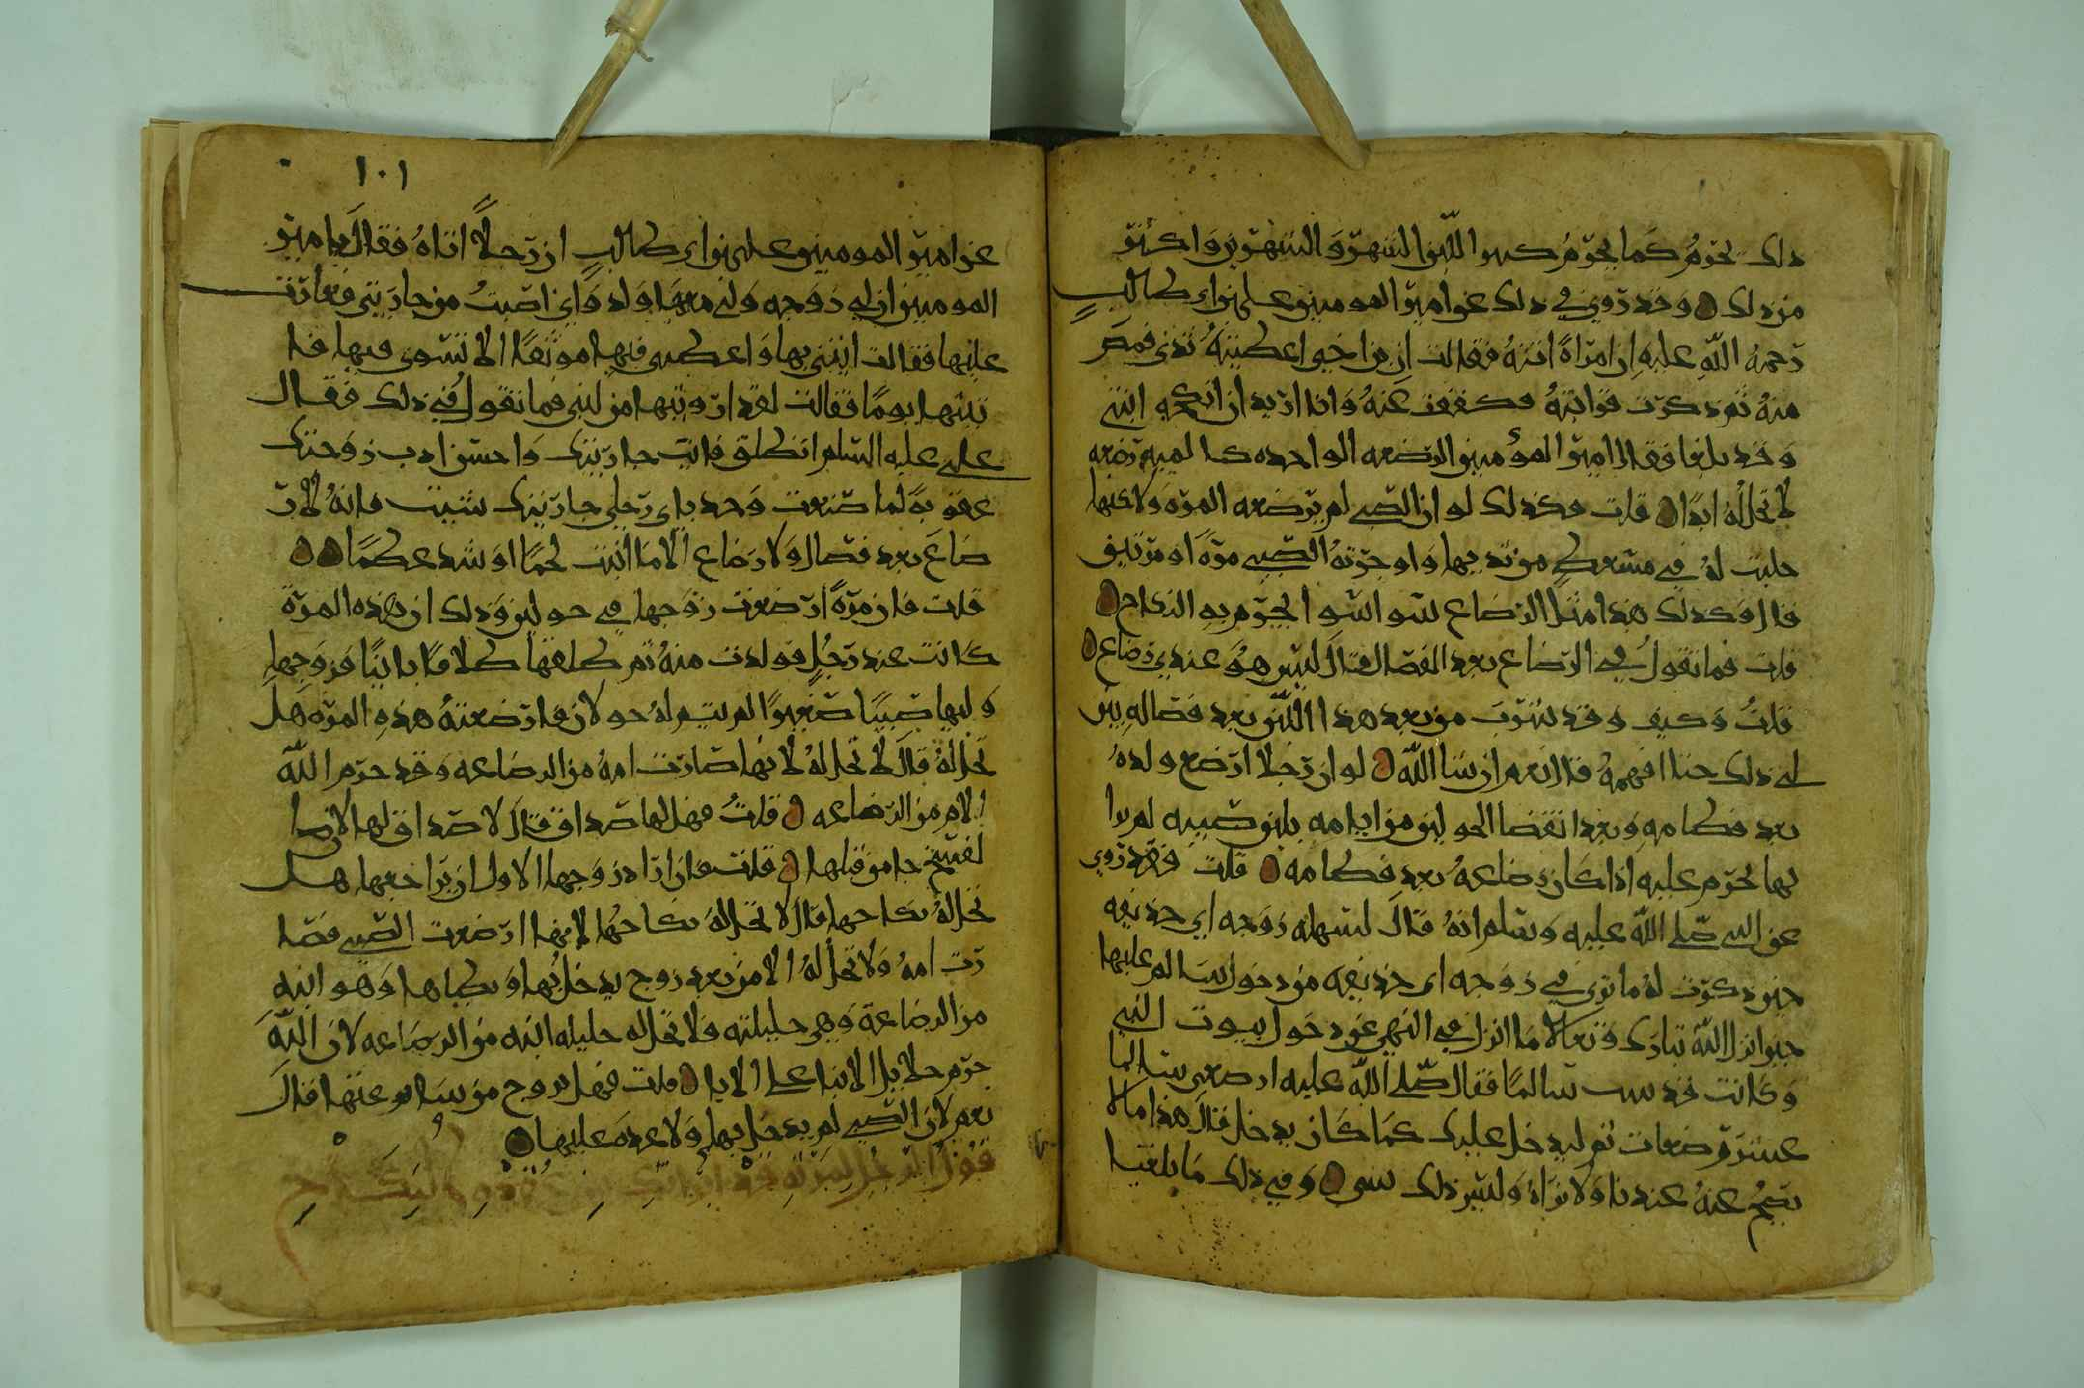 ذلك يحرم كما يحرم كسوا اللبن الشهر والشهرين واكثر
من ذلك وقد روي في ذلك عن امير المومنين علي بن ابي طالب
رحمة الله عليه ان امراة اتته فقالت ان بن اخي اعطيته ثدي فمص
منه ثم ذكرت قرابته فكففت عنه وانا اريد ان انكحه ابنتي
وقد بلغا فقال امير المؤمنين الرضعه الواحده كالميه رضعه
لا تحل له ابدا قلت فكذلك لو ان الصبي لم ترضعه المره ولاكنها
حلبت له في مسعط من ثديها واوجرته الصبي مرة او مرتين
قال وكذلك هذا مثل الرضاع سوا سوا يحرم به النكاح
قلت فما تقول في الرضاع بعد الفصال قال ليس هو عندي رضاع
قلت وكيف وقد شرب من بعد هذا اللبن بعد فصاله بين
لي ذلك حتا افهمه قال نعم ان شا الله لو ان رجلا ارضع ولده
بعد فطامه وبعد انقضا الحولين من ايامه بلبن صبيه لم يرا
بها تحرم عليه اذا كان رضاعه بعد فطامه قلت فقد روي
عن النبي صلى الله عليه وسلم انه قال لسهله زوجه ابي حذيفه
حين ذكرت له ما تري في زوجه ابي حذيفه من دخول سالم عليها
حين انزل الله تبارك وتعالا ما انزل في النهي عن دخول بيوت النبي
وكانت قد سالما فقال صلى الله عليه ارضعي سالما
عشر رضعات ثم ليدخل عليك كما كان يدخل قال هذا مالا
يصح عنه عندنا ولا نراه وليس ذلك بشي وفي ذلك ما بلغنا
١٠١
عن امير المومنين علي بن ابي طالب ان رجلا اتاه فقال يا امير
المومنين ان لي زوجه ولي منها ولد واني اصبت من جاريتي فغارت
عليها فقالت ايتني بها واعطني فيها موثقا الا تسوي فيها فا
تيتها يوما فقالت لقد ارويتها من لبني فما تقول في ذلك فقال
علي عليه السلم انطلق فات جاريتك واحسن ادب زوجتك
عقوبة لما صنعت وخد باي رجلي جاريتك شيت فانه لا ر
ضاع بعد فصال ولا رضاع الا ما انبت لحما او شد عظما
قلت فان مرة ارضعت زوجها في حولين وذلك ان هذه المرة
كانت عند رجل فولدت منه ثم طلقها طلاقا باينا فزوجها
وليها صبيا صغيرا لم يتم له حولان فارضعته هذه المره هل
تحل له قال لا تحل له لانها صارت امه من الرضاعه وقد حرم الله
الام من الرضاعه قلت فهل لها صداق قال لا صداق لها لان ا
لفسخ جا من قبلها قلت فان اراد زوجها الاول ان يراجعها هل
تحل له نكاحها قال لا تحل له نكاحها لانها ارضعت الصبي فصا
رت امه ولا تحل له الا من بعد زوج يدخل بها ويطاها وهو ابنه
من الرضاعة وهي حليلته ولا تحل له حليله ابنه من الرضاعه لان الله
حرم حلايل الابنا على الابا قلت فهل تزوج من ساعتها قال
نعم لان الصبي لم يدخل بها ولا عده عليها